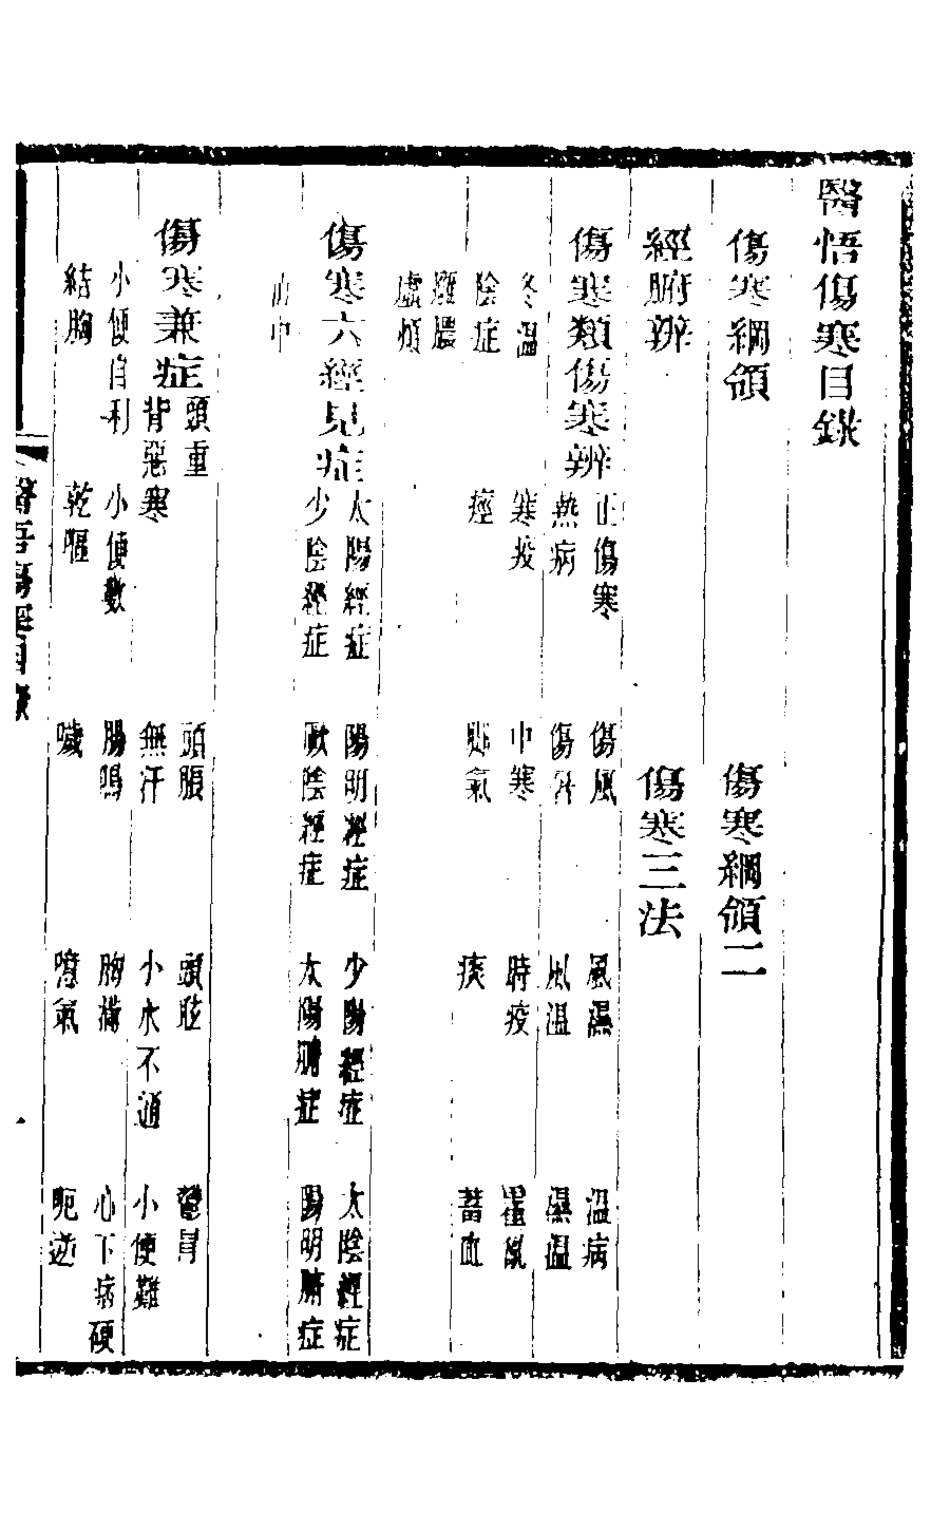 醫悟傷寒目錄
傷寒綱領
傷寒綱領二
經腑辨
傷寒三法
傷寒類傷寒辨
正傷寒
傷風
風濕
溫病
熱病
傷暑
風溫
濕溫
冬溫
寒疫
中寒
時疫
霍亂
陰症
痙
脚氣
痰
蓄血
癰膿
虛煩
傷寒六經見症
太陽經症
陽明經症
少陽經症
太陰經症
少陰經症
厥陰經症
太陽腑症
陽明腑症
直中
傷寒兼症
頭重
頭脹
頭眩
鬱冒
背惡寒
無汗
小水不通
小便難
小便自利
小便數
腸鳴
胸滿
心下痛硬
結胸
乾嘔
噦
噫氣
呃逆
醫悟傷寒目錄
一